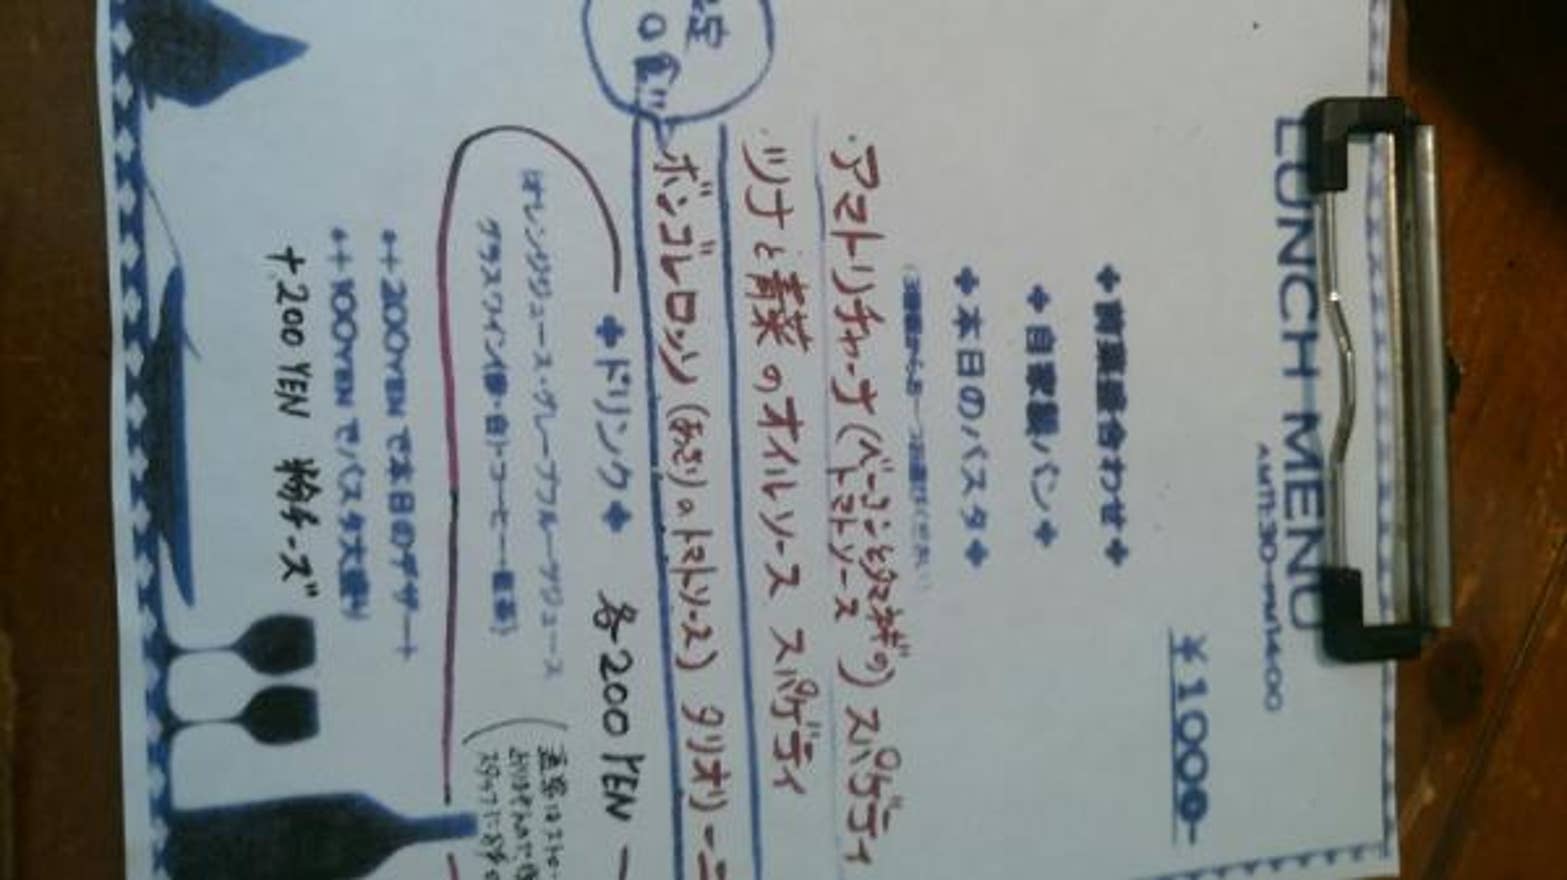 LUNCH MENU
AM11:30~PM14:00
¥1000-
✤前菜盛合わせ✤
✤自家製パン✤
✤本日のパスタ✤
・アマトリチャーナ(ベーコンと玉ネギのトマトソース) スパゲティ
・ツナと青菜のオイルソース スパゲティ
ボンゴレロッソ(あさりのトマトソース) タリオリーニ
食
✤ドリンク✤ 各200YEN
オレンジジュース・グレープフルーツジュース
グラスワイン(赤・白)・コーヒー・紅茶)
++200YENで本日のデザート
++100YENでパスタ大盛り
+200YEN 粉チーズ